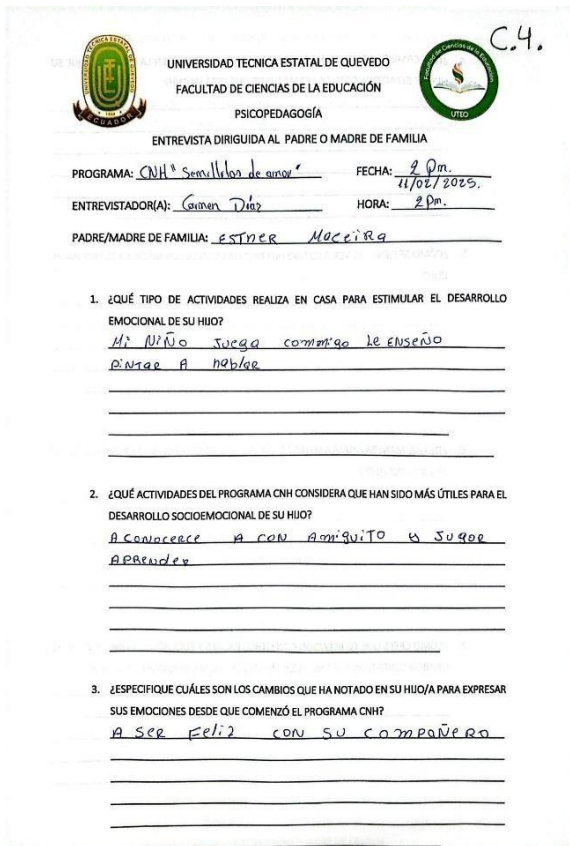 C.4.
UNIVERSIDAD TECNICA ESTATAL DE QUEVEDO
FACULTAD DE CIENCIAS DE LA EDUCACIÓN
PSICOPEDAGOGÍA
ENTREVISTA DIRIGUIDA AL PADRE O MADRE DE FAMILIA
UNIVERSIDAD TECNICA ESTATAL DE QUEVEDO
ECUADOR
Facultad de Ciencias de la Educación
UTEQ
PROGRAMA: CNH "Semillitas de amor" FECHA: 2 Pm.
11/02/2025.
ENTREVISTADOR(A): Carmen Díaz HORA: 2 Pm.
PADRE/MADRE DE FAMILIA: ESTHER MaceiRa
1. ¿QUÉ TIPO DE ACTIVIDADES REALIZA EN CASA PARA ESTIMULAR EL DESARROLLO
EMOCIONAL DE SU HIJO?
Mi NIÑO Juega commigo Le ENSEÑO
PINTAR A hablar
2. ¿QUÉ ACTIVIDADES DEL PROGRAMA CNH CONSIDERA QUE HAN SIDO MÁS ÚTILES PARA EL
DESARROLLO SOCIOEMOCIONAL DE SU HIJO?
A CONOCERCE A CON AmiguiTO y JUgar
APRender
3. ¿ESPECIFIQUE CUÁLES SON LOS CAMBIOS QUE HA NOTADO EN SU HIJO/A PARA EXPRESAR
SUS EMOCIONES DESDE QUE COMENZÓ EL PROGRAMA CNH?
A SER Feliz CON SU COMPAÑERO